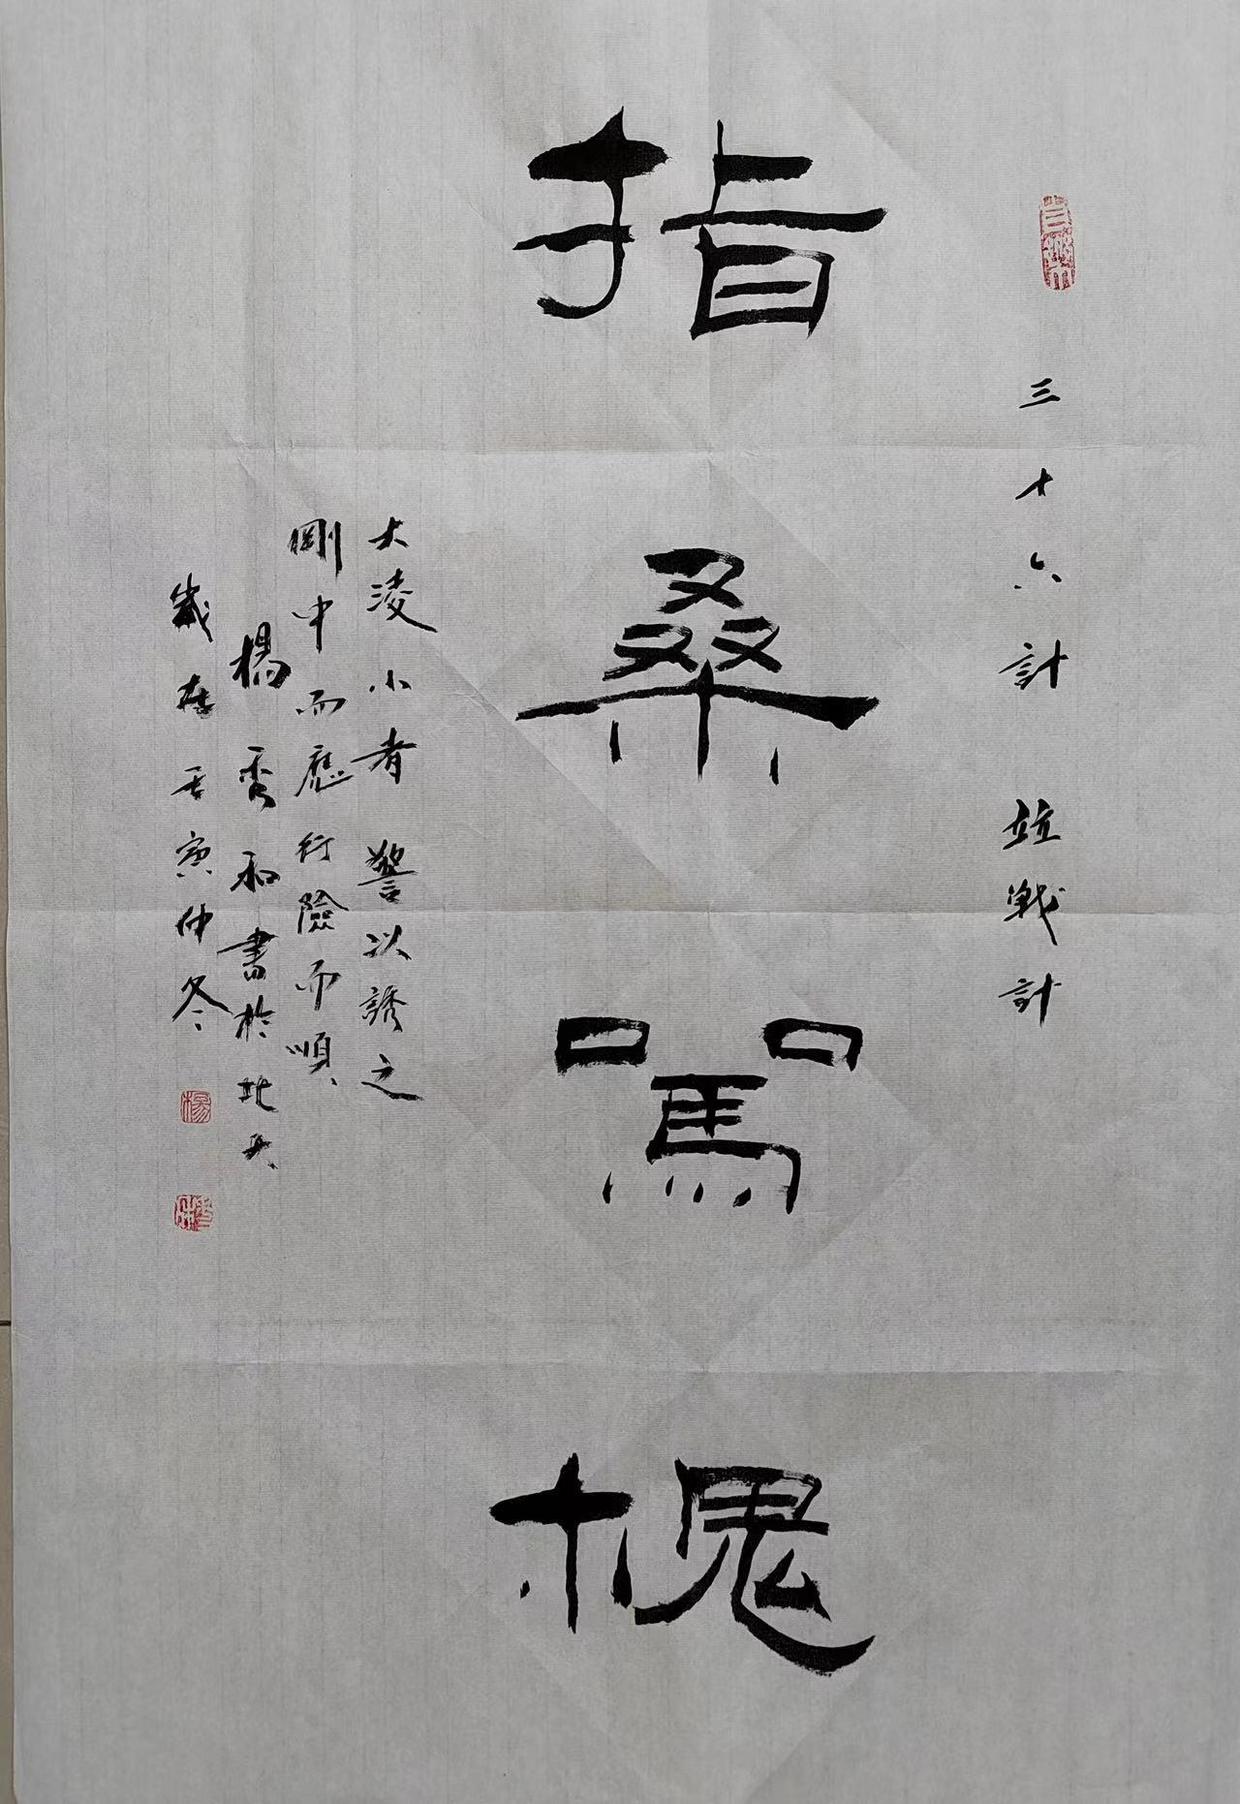 三十六計 竝戰計
指桑罵槐
大淩小者 警以誘之
剛中而應行險而順
楊秀和書於北大
歲在壬寅仲冬
楊